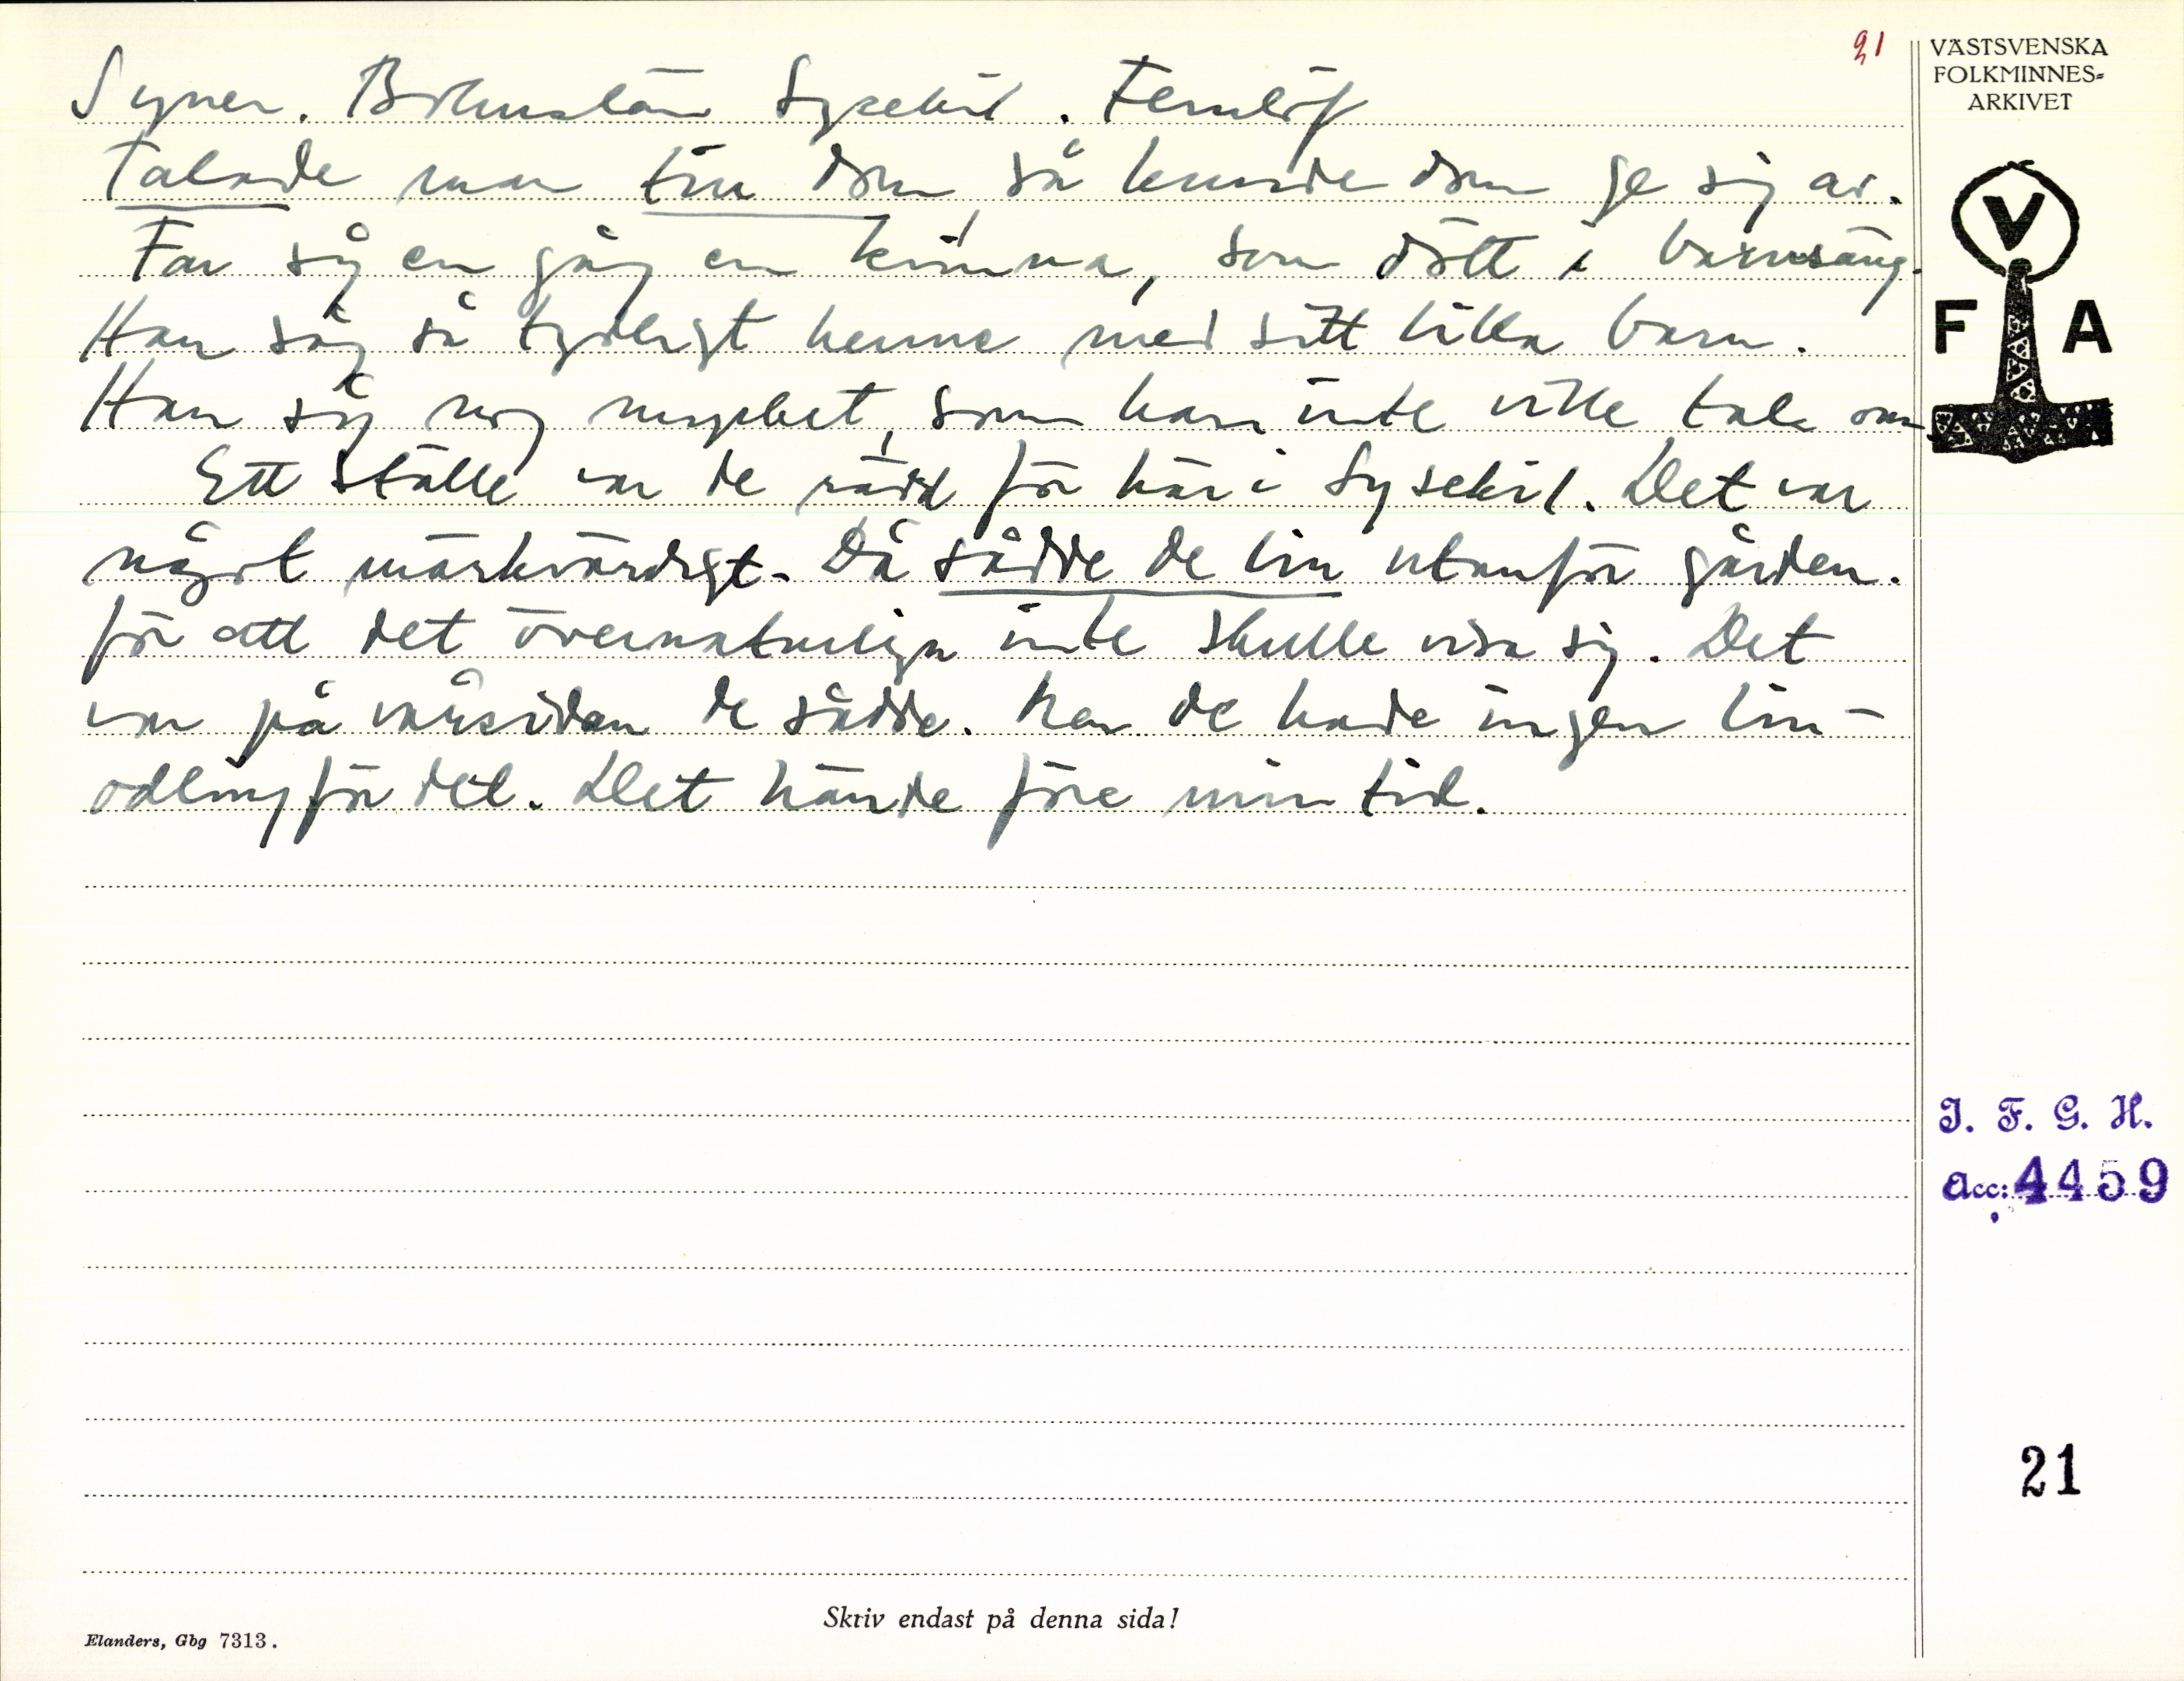 21
VÄSTSVENSKA
FOLKMINNES-
ARKIVET
Syner. Bohuslän Lysekil. Fernlöf
Talade man till dom, så kunde dom ge sig av.
Far såg en gång en kvinna, som dött i barnsäng.
Han såg så tydligt henne med sitt lilla barn.
Han såg nog mycket, som han inte ville tala om
Ett ställe var de rädd för här i Lysekil. Det var
något märkvärdigt. Då sådde de lin utanför gården.
för att det övernaturliga inte skulle visa sig. Det
var på vårsidan de sådde. Men de hade ingen lin-
odling för det. Det hände före min tid.
V
F A
I. F. G. H.
Acc: 4459
21
Skriv endast på denna sida!
Elanders, Gbg 7313.